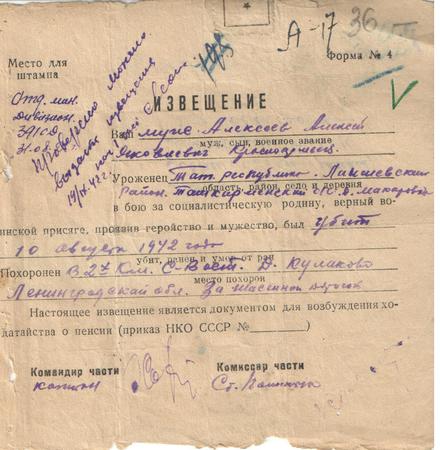 А-17 36
Форма № 4
Место для
штампа
Отд. ман.
дивизион.
391СД
31.08.
Проверено можно
выдать извещение
ИЗВЕЩЕНИЕ
Ваш муж Алексеев Алексей
муж, сын, военное звание
Яковлевич Красноармеец
Уроженец Тат. республика. Лаишевский
область, район, село и деревня
район
в бою за социалистическую родину, верный во-
инской присяге, проявив геройство и мужество, был убит
10 августа 1942 года
убит, ранен и умер от ран
Похоронен в 2х км. С-Вост. д. Кулаково
место похорон
Ленинградской обл. за
Настоящее извещение является документом для возбуждения хо-
датайства о пенсии (приказ НКО СССР №)
Командир части
капитан
Комиссар части
Ст.